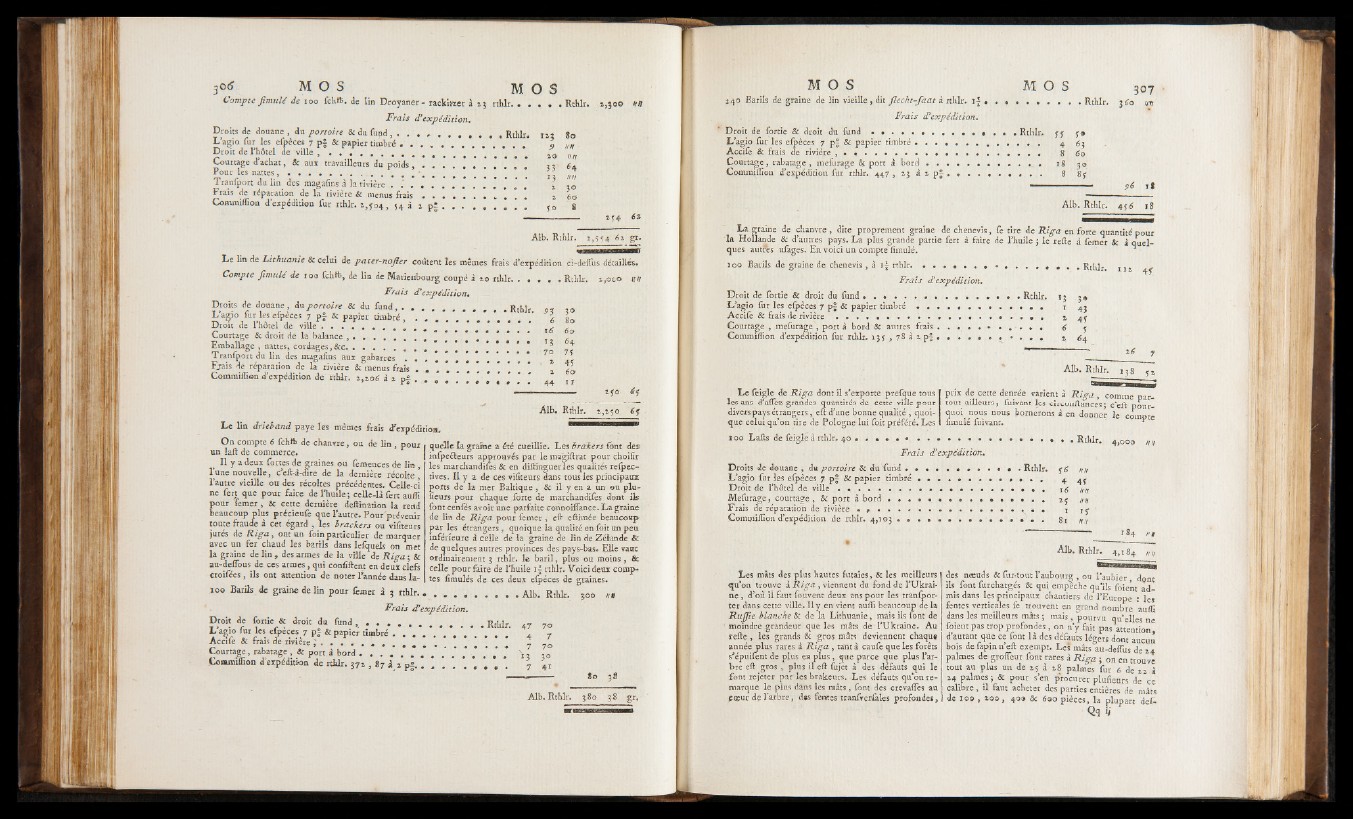 306 MOS MOS
Compte simulé de 100 sch℔. de lin Droyaner-rackitzer à 23 rthlr. . . . . . Rthlr. 2,300 ""
Frais d'expédition.
Droits de douane, du portoire & du fund, . . . . . . . . . . . Rthlr. 123 80
L'agio sur les espèces 7 p° & papier timbré . . . . . . . . . . 9 ""
Droit de l'hôtel de ville, . . . . . . . . . . 20 ""
Courtage d'achat, & aux travailleurs du poids, . . . . . . . . . . 33 64
Pour les nattes, . . . . . . . . . . 13 ""
Transport du lin des magasins à la rivière . . . . . . . . . . 2 30
Frais de réparation de la rivière & menus frais . . . . . . . . . . 2 60
Commission d'expédition sur rthlr. 2,504, 54 à 2 p° . . . . . . . . . 50 8
254 62
Alb. Rthlr. 2,554 62 gr.
Le lin de Lithuanie & celui de pater-noster coûtent les mêmes frais d'expédition ci-dessus détaillés.
Compte simulé de 100 sch℔, de lin de Marienbourg coupé à 20 rthlr. . . . . . Rthlr. 2,000 ""
Frais d'expédition.
Droits de douane, du portoire & du fund, . . . . . . . . . . Rthlr. 93 30
L'agio sur les espèces 7 p° & papier timbré, . . . . . . . . . . 6 80
Droit de l'hôtel de ville . . . . . . . . . . 16 60
Courtage & droit de la balance, . . . . . . . . . . 13 64
Emballage, nattes, cordages, &c. . . . . . . . . . . 70 75
Transport du lin des magasins aux gabarres . . . . . . . . . . 2 45
Frais de réparation de la rivière & menus frais . . . . . . . . . . 2 60
Commission d'expédition de rthlr. 2,206 à 2 p° . . . . . . . . . . 44 11
250 65
Alb. Rthlr. 2,250 65
Le lin drieband paye les mêmes frais d'expédition.
On compte 6 sch℔ de chanvre, ou de lin, pour
un last de commerce.
Il y a deux sortes de graines ou semences de lin,
l'une nouvelle, c'est-à-dire de la dernière récolte,
l'autre vieille ou des récoltes précédentes. Celle-ci
ne sert que pour faire de l'huile; celle-là sert aussi
pour semer, & cette dernière destination la rend
beaucoup plus précieuse que l'autre. Pour prévenir
toute fraude à cet égard, les brackers ou visiteurs
jurés de Riga, ont un soin particulier de marquer
avec un fer chaud les barils dans lesquels on met
la graine de lin, des armes de la ville de Riga; &
au-dessous de ces armes, qui consistent en deux clefs
croisées, ils ont attention de noter l'année dans la-
quelle la graine a été cueillie. Les brakers sont des
inspecteurs approuvés par le magistrat pour choisir
les marchandises & en distinguer les qualités respec-
tives. Il y a de ces visiteurs dans tous les principaux
ports de la mer Baltique, & il y en a un ou plu-
sieurs pour chaque sorte de marchandises dont ils
sont censés avoir une parfaite connoissance. La graine
de lin de Riga pour semer, est estimée beaucoup
par les étrangers, quoique la qualité en soit un peu
inférieure à celle de la graine de lin de Zélande &
de quelques autres provinces des pays-bas. Elle vaut
ordinairement 3 rthlr. le baril, plus ou moins, &
celle pour faire de l'huile 1½ rthlr. Voici deux comp-
tes simulés de ces deux espèces de graines.
100 Barils de graine de lin pour semer à 3 rthlr. . . . . . . . . . . Alb. Rthlr. 300 ""
Frais d'expédition.
Droit de sortie & droit du fund, . . . . . . . . . . Rthlr. 47 70
L'agio sur les espèces 7 p° & papier timbré . . . . . . . . . . 4 7
Accise & frais de rivière, . . . . . . . . . . 7 70
Courtage, rabatage, & port à bord . . . . . . . . . . 13 30
Commission d'expédition de rthlr. 372, 87 à 2 p° . . . . . . . . . . 7 41
80 38
Alb. Rthlr. 380 38 gr.
MOS MOS 307
240 Barils de graine de lin vieille, dit slecht-saat à rthlr. 1½ . . . . . . . . . . Rthlr. 360 ""
Frais d'expédition.
Droit de sortie & droit du fund . . . . . . . . . . Rthlr. 55 50
L'agio sur les espèces 7 p° & papier timbré . . . . . . . . . . 4 63
Accise & frais de rivière, . . . . . . . . . . 8 60
Courtage, rabatage, mesurage & port à bord . . . . . . . . . . 18 30
Commission d'expédition sur rthlr. 447, 23 à 2 p° . . . . . . . . . . 8 85
96 18
Alb. Rthlr. 456 18
La graine de chanvre, dite proprement graine de chenevis, se tire de Riga en forte quantité pour
la Hollande & d'autres pays. La plus grande partie sert à faire de l'huile; le reste à semer & à quel-
ques autres usages. En voici un compte simulé.
100 Barils de graine de chenevis, à 1⅛ rthlr. . . . . . . . . . . Rthlr. 112 45
Frais d'expédition.
Droit de sortie & droit du fund . . . . . . . . . . Rthlr. 13 30
L'agio sur les espèces 7 p° & papier timbré . . . . . . . . . . 1 43
Accise & frais de rivière . . . . . . . . . . 2 45
Courtage, mesurage, port à bord & autres frais . . . . . . . . . . 6 5
Commission d'expédition sur rthlr. 135, 78 à 2 p° . . . . . . . . . . 2 64
26 7
Alb. Rthlr. 138 52
Le seigle de Riga dont il s'exporte presque tous
les ans d'assez grandes quantités de cette ville pour
divers pays étrangers, est d'une bonne qualité, quoi-
que celui qu'on tire de Pologne lui soit préféré. Les
prix de cette denrée varient à Riga, comme par-
tout ailleurs, suivant les circonstances; c'est pour-
quoi nous nous bornerons à en donner le compte
simulé suivant.
100 Lasts de seigle à rthlr. 40 . . . . . . . . . . Rthlr. 4,000 ""
Frais d'expédition.
Droits de douane, du portoire & du fund . . . . . . . . . . Rthlr. 56 ""
L'agio sur les espèces 7 p° & papier timbré . . . . . . . . . . 4 45
Droit de l'hôtel de ville . . . . . . . . . . 16 ""
Mesurage, courtage, & port à bord . . . . . . . . . . 25 ""
Frais de réparation de rivière . . . . . . . . . . 1 15
Commission d'expédition de rthlr. 4,103 . . . . . . . . . . 81 ""
184 ""
Alb. Rthlr. 4,184 ""
Les mâts des plus hautes futaies, & les meilleurs
qu'on trouve à Riga, viennent du fond de l'Ukrai-
ne, d'où il faut souvent deux ans pour les transpor-
ter dans cette ville. Il y en vient aussi beaucoup de la
Russie blanche & de la Lithuanie, mais ils sont de
moindre grandeur que les mâts de l'Ukraine. Au
reste, les grands & gros mâts deviennent chaque
année plus rares à Riga, tant à cause que les forêts
s'épuisent de plus en plus, que parce que plus l'ar-
bre est gros, plus il est sujet à des défauts qui le
font rejeter par les brakeurs. Les défauts qu'on re-
marque le plus dans les mâts, sont des crevasses au
cœur de l'arbre, des fentes transversales profondes,
des nœuds & sur-tout l'aubourg, ou l'aubier, dont
ils sont surchargés & qui empêche qu'ils soient ad-
mis dans les principaux chantiers de l'Europe: les
fentes verticales se trouvent en grand nombre aussi
dans les meilleurs mâts; mais, pourvu qu'elles ne
soient pas trop profondes, on n'y fait pas attention,
d'autant que ce sont là des défauts légers dont aucun
bois de sapin n'est exempt. Les mâts au-dessus de 24
palmes de grosseur sont rares à Riga; on en trouve
tout au plus un de 25 à 28 palmes sur 6 de 22 à
24 palmes; & pour s'en procurer plusieurs de ce
calibre, il faut acheter des parties entières de mâts
de 100, 200, 400 & 600 pièces, la plupart des-
Qq ij